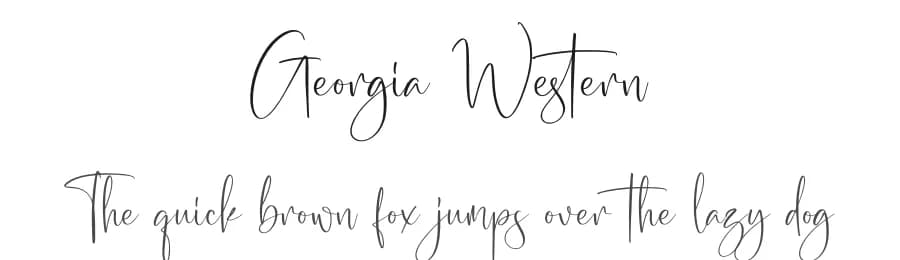 Georgia Western
The quick brown fox jumps over the lazy dog